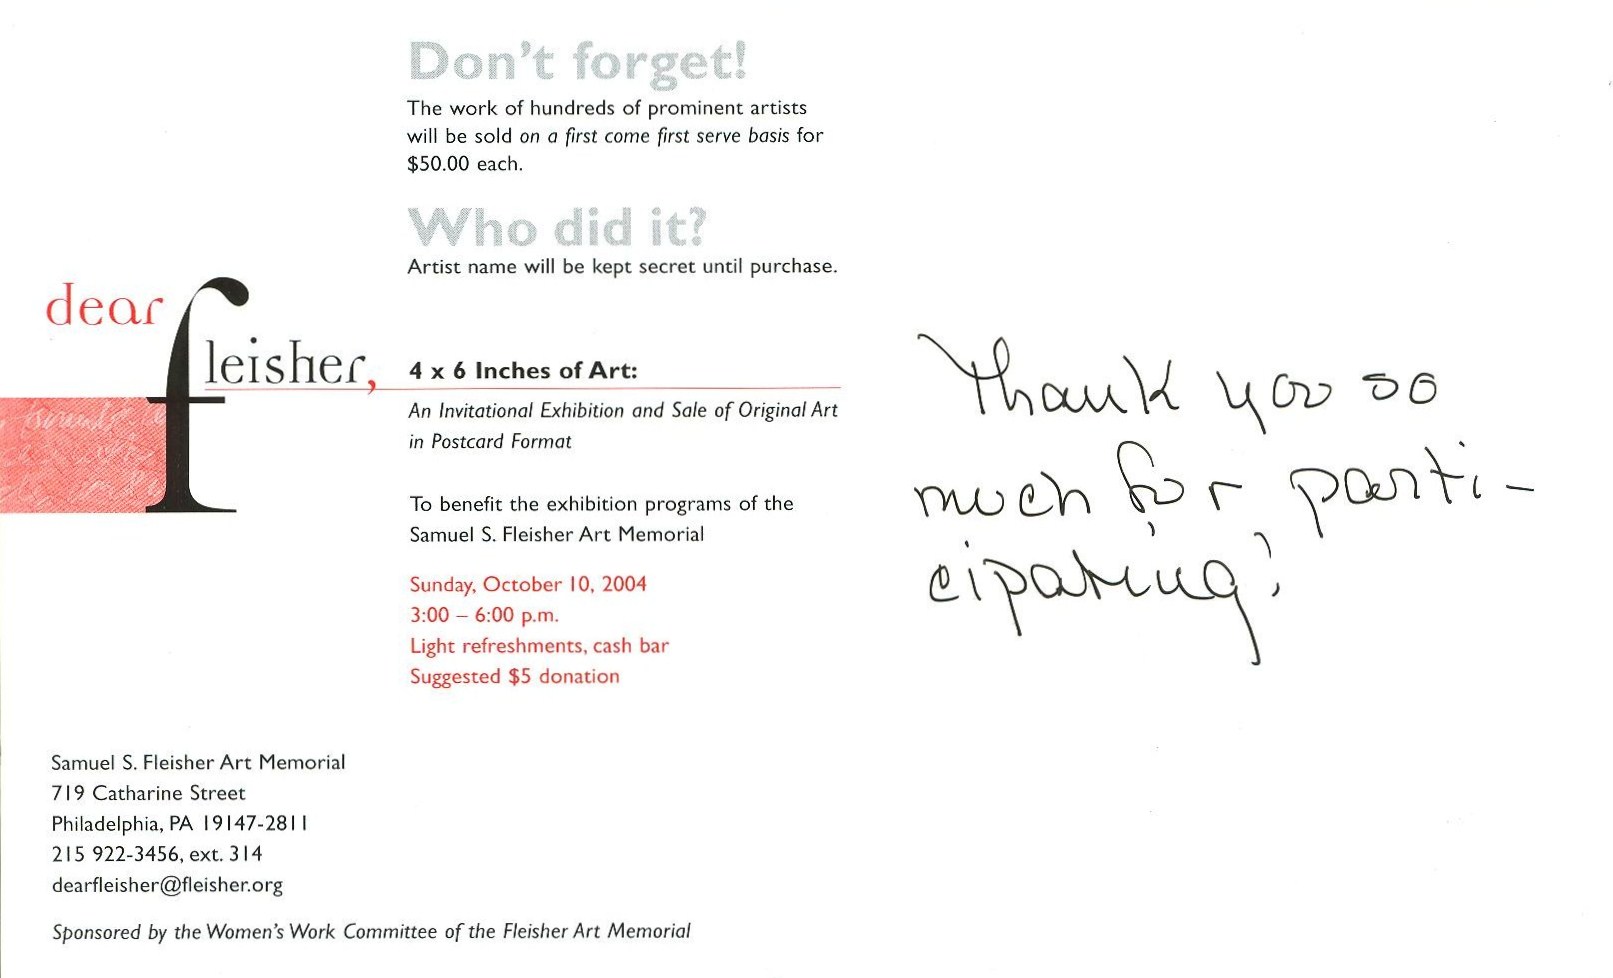 Don't forget!
The work of hundreds of prominent artists
will be sold on a first come first serve basis for
$50.00 each.
Who did it?
Artist name will be kept secret until purchase.
dear
fleisher,
4 x 6 Inches of Art:
An Invitational Exhibition and Sale of Original Art
in Postcard Format
To benefit the exhibition programs of the
Samuel S. Fleisher Art Memorial
Sunday, October 10, 2004
3:00 – 6:00 p.m.
Light refreshments, cash bar
Suggested $5 donation
Samuel S. Fleisher Art Memorial
719 Catharine Street
Philadelphia, PA 19147-2811
215 922-3456, ext. 314
dearfleisher@fleisher.org
Sponsored by the Women's Work Committee of the Fleisher Art Memorial
Thank you so
much for parti-
cipating!